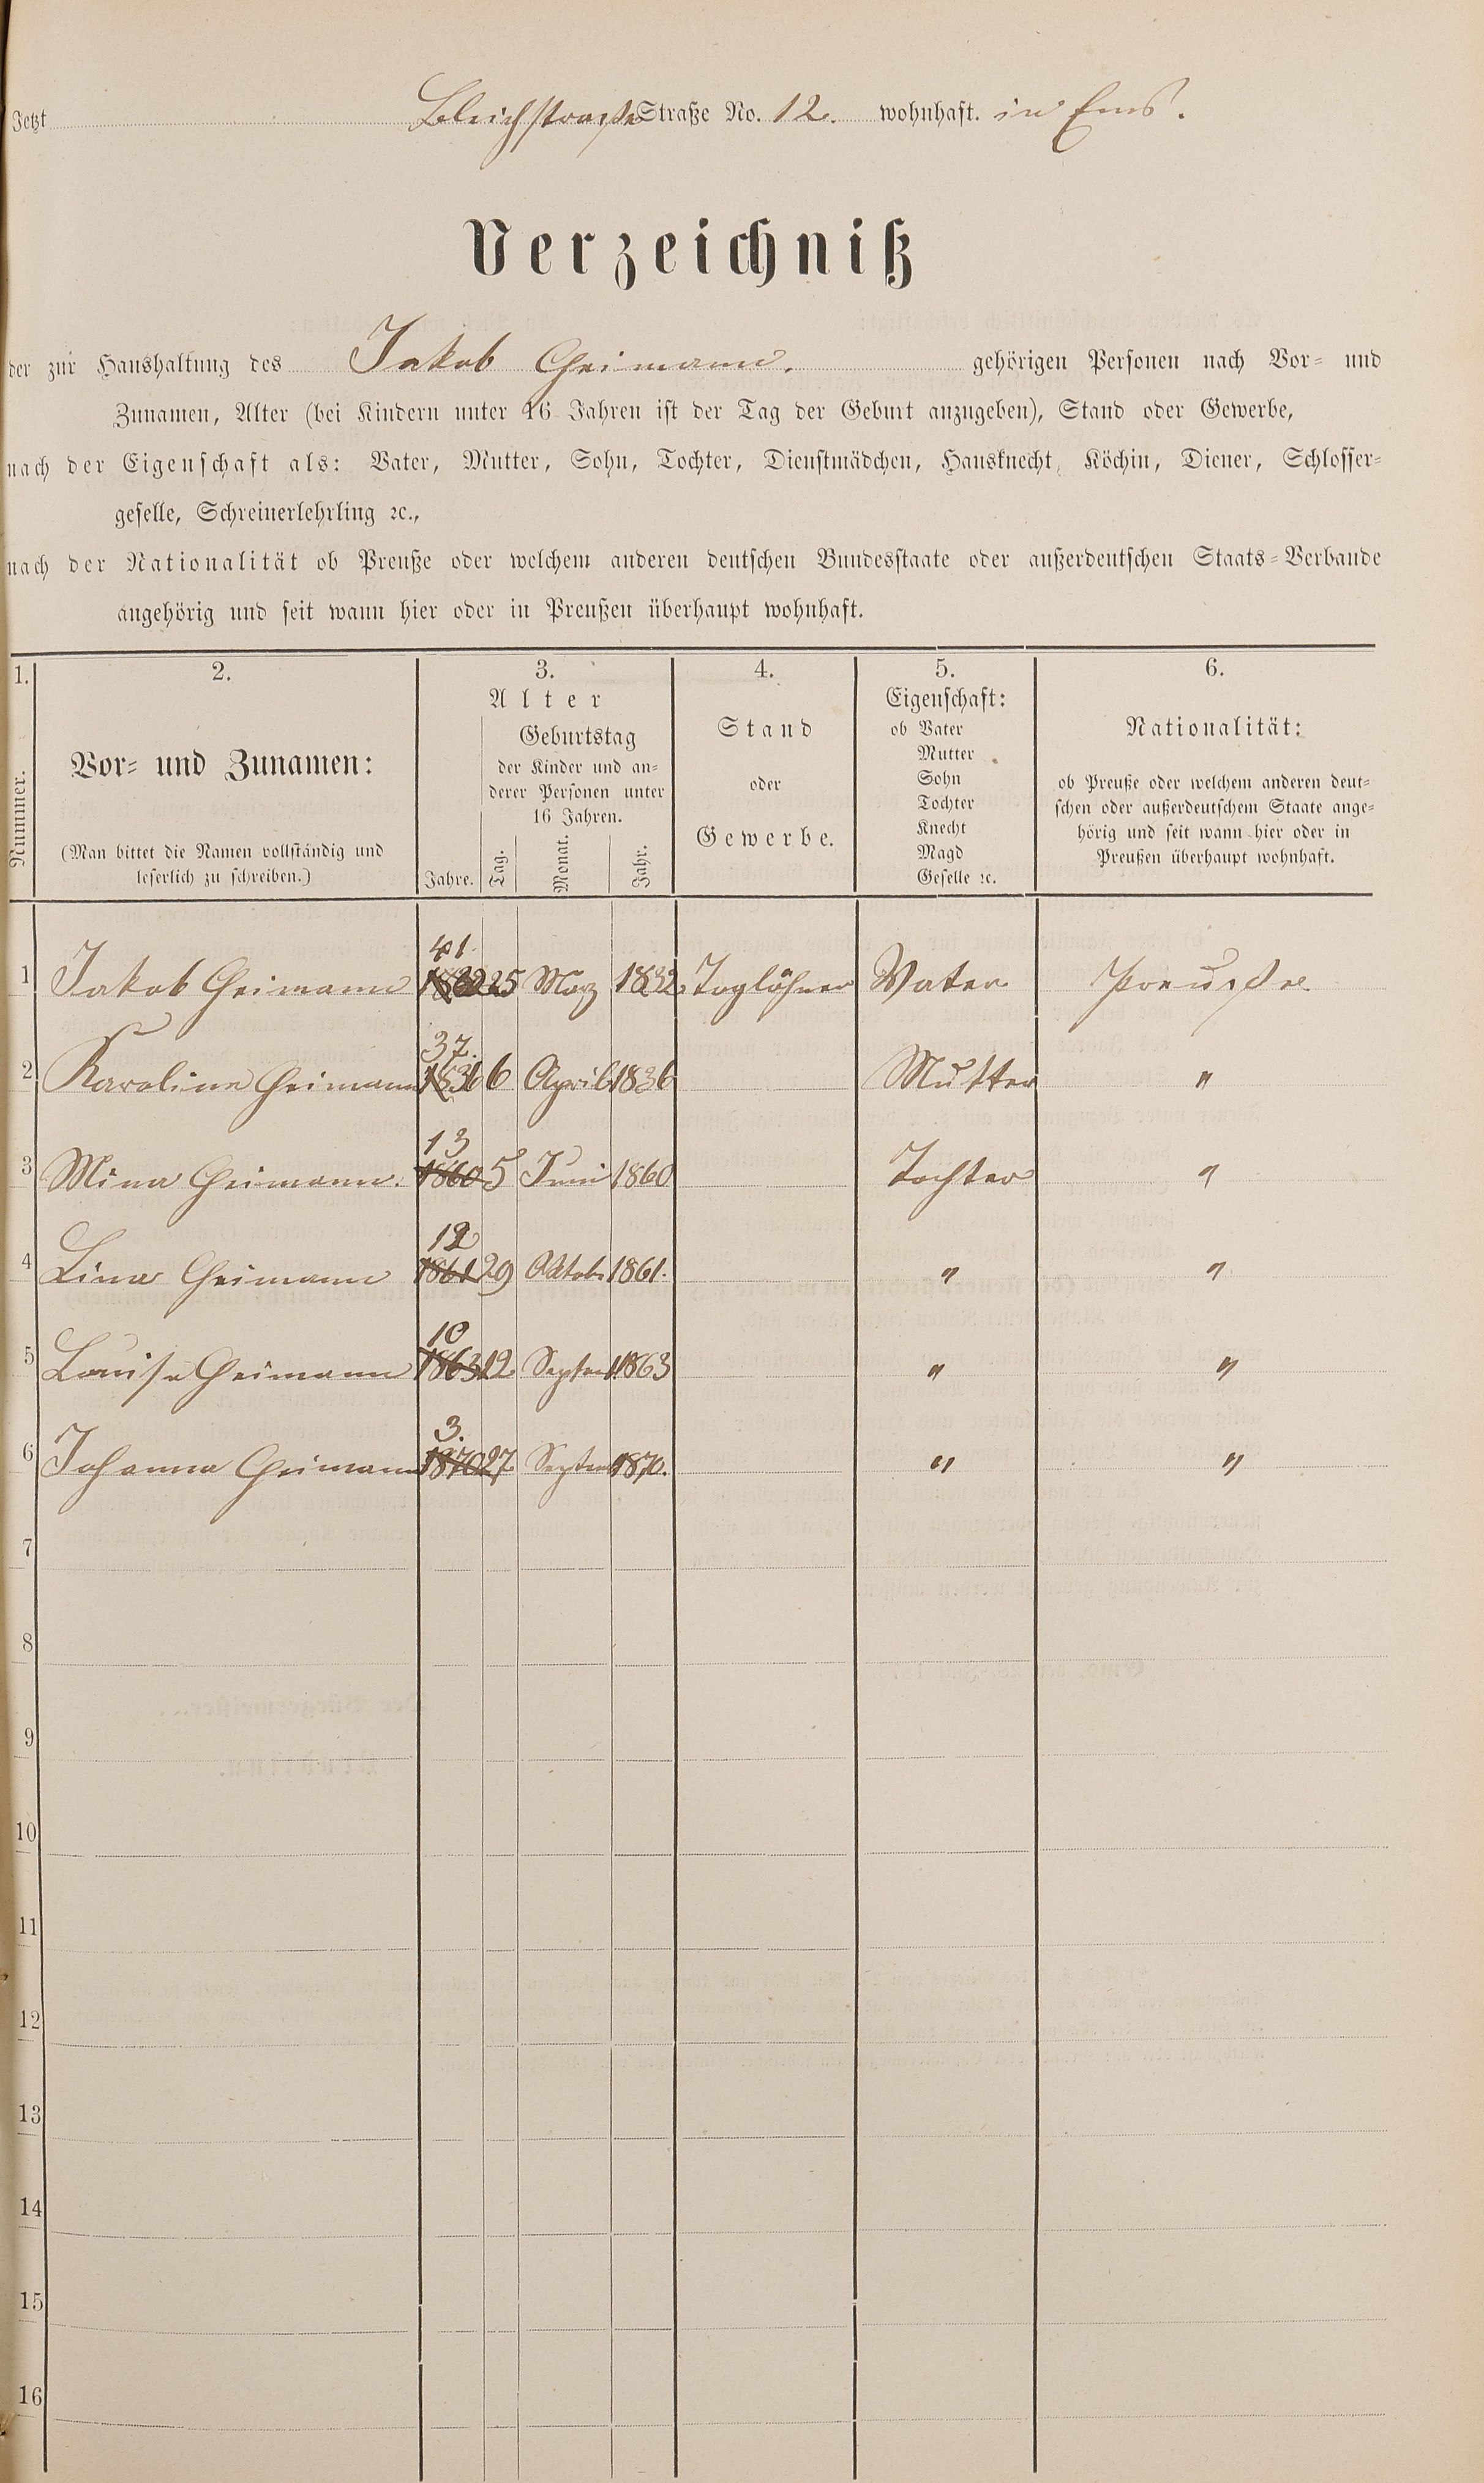 Jetzt Bleichstraße Straße No. 12. wohnhaft. in Ems.
Verzeichniß
der zur Haushaltung des Jakob Heimann. gehörigen Personen nach Vor- und
Zunamen, Alter (bei Kindern unter 16 Jahren ist der Tag der Geburt anzugeben), Stand oder Gewerbe,
nach der Eigenschaft als: Vater, Mutter, Sohn, Tochter, Dienstmädchen, Hausknecht, Köchin, Diener, Schlosser-
geselle, Schreinerlehrling ꝛc.,
nach der Nationalität ob Preuße oder welchem anderen deutschen Bundesstaate oder außerdeutschen Staats-Verbande
angehörig und seit wann hier oder in Preußen überhaupt wohnhaft.
1. 2. 3. 4. 5. 6.
Nummer.
Vor- und Zunamen:
(Man bittet die Namen vollständig und
leserlich zu schreiben.)
Alter
Geburtstag
der Kinder und an-
derer Personen unter
16 Jahren.
Jahre. Tag. Monat. Jahr.
Stand
oder
Gewerbe.
Eigenschaft:
ob Vater
Mutter
Sohn
Tochter
Knecht
Magd
Geselle ꝛc.
Nationalität:
ob Preuße oder welchem anderen deut-
schen oder außerdeutschem Staate ange-
hörig und seit wann hier oder in
Preußen überhaupt wohnhaft.
41.
1 Jakob Heimann 1832 25 März 1832. Taglöhner Vater Preuße
37.
2 Karoline Heimann 1836 6 April 1836 Mutter "
13
3 Mina Heimann. 1860 5 Juni 1860 Tochter "
12
4 Lina Heimann 1861 29 Oktob 1861. " "
10
5 Louise Heimann 1863 12 Septem 1863 " "
3.
6 Johanna Heimann 1870 27 Septem 1870. " "
7
8
9
10
11
12
13
14
15
16